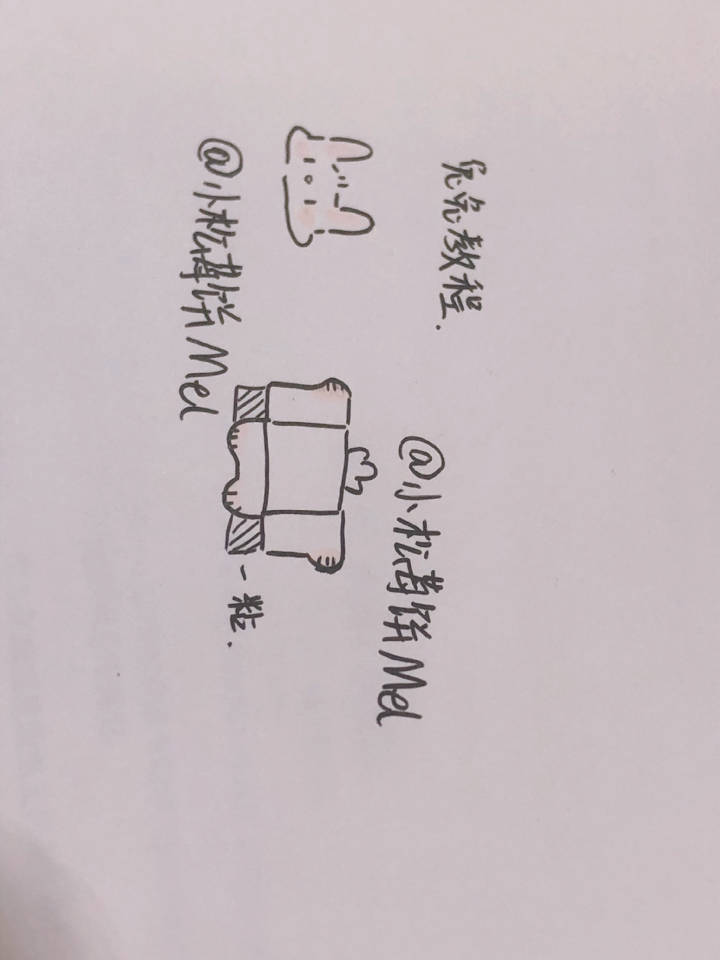 兔兔教程.
@小松萬饼Mel
@小松萬饼Mel
一粘.